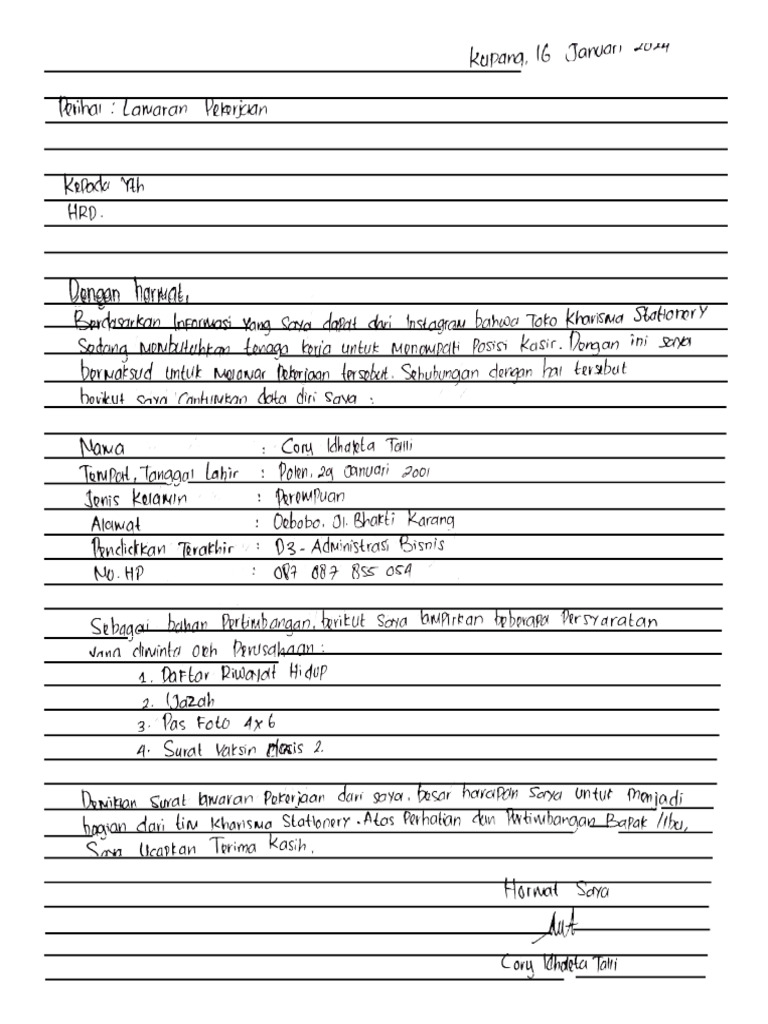 Kupang, 16 Januari 2024
Perihal : Lamaran Pekerjaan
Kepada Yth
HRD.
Dengan hormat,
Berdasarkan Informasi yang saya dapat dari Instagram bahwa Toko Kharisma Stationery
Sedang Membutuhkan tenaga kerja untuk Menempati Posisi Kasir. Dengan ini saya
bermaksud untuk Melamar Pekerjaan tersebut. Sehubungan dengan hal tersebut
berikut saya Cantumkan data diri Saya :
Nama : Cory Talli
Tempat, Tanggal Lahir : Polen, 29 Januari 2001
Jenis Kelamin : Perempuan
Alamat : Oebobo, Jl. Bhakti Karang
Pendidikan Terakhir : D3 - Administrasi Bisnis
No. HP : 087 087 855 059
Sebagai bahan Pertimbangan, berikut Saya lampirkan beberapa Persyaratan
yang diminta oleh Perusahaan :
1. Daftar Riwayat Hidup
2. Ijazah
3. Pas Foto 4x6
4. Surat Vaksin dosis 2.
Demikian Surat lamaran Pekerjaan dari saya, besar harapan Saya untuk menjadi
bagian dari tim Kharisma Stationery. Atas Perhatian dan Pertimbangan Bapak /Ibu,
Saya Ucapkan Terima Kasih.
Hormat Saya
Cory Talli